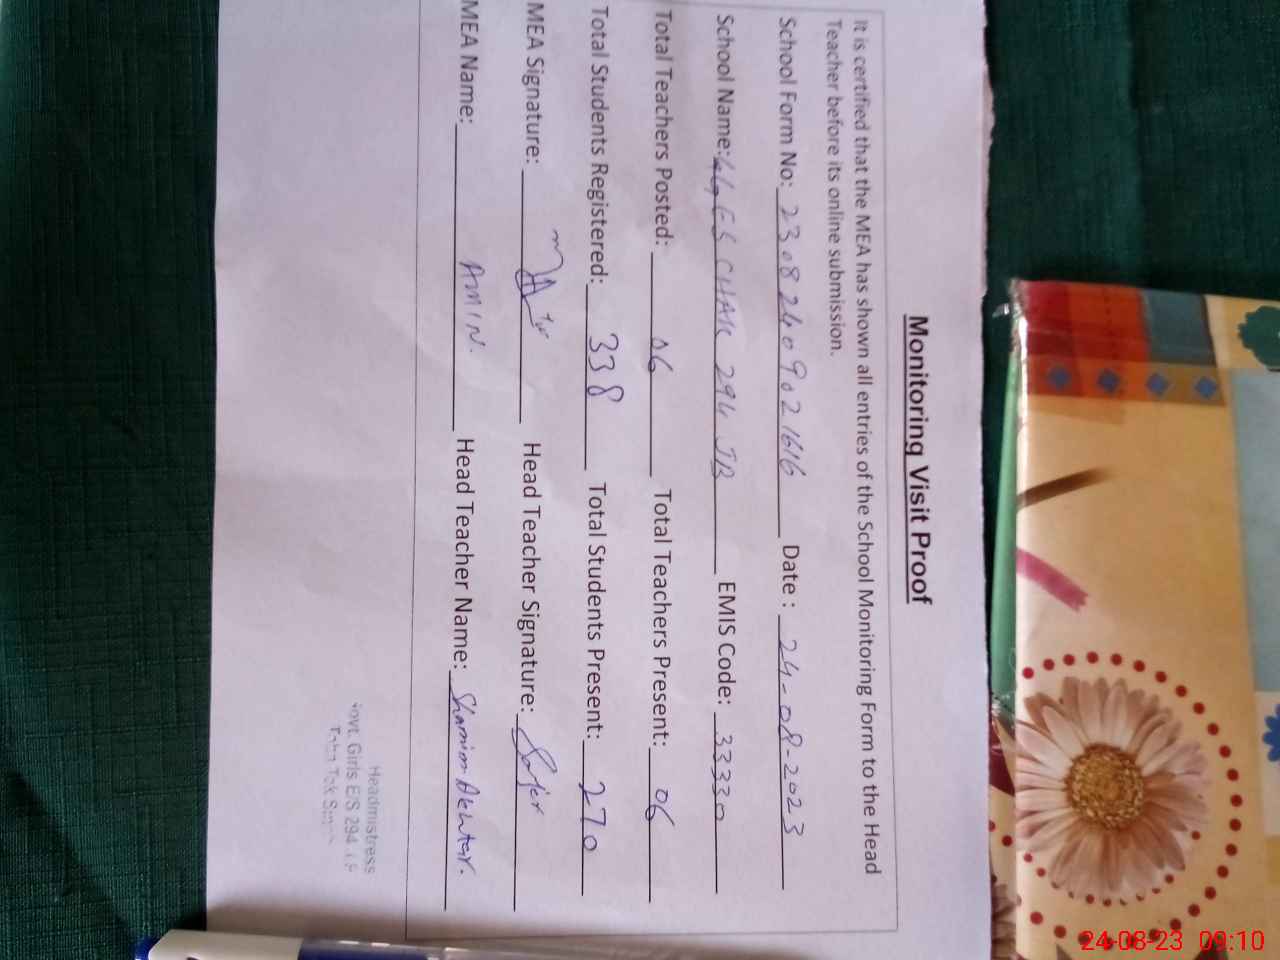 Monitoring Visit Proof
It is certified that the MEA has shown all entries of the School Monitoring Form to the Head
Teacher before its online submission.
School Form No: 23082409021616 Date : 24-08-2023
School Name: GGES CHAK 294 JB EMIS Code: 33330
Total Teachers Posted: 06 Total Teachers Present: 06
Total Students Registered: 338 Total Students Present: 270
MEA Signature: Head Teacher Signature:
MEA Name: AMIN. Head Teacher Name: Shamim Akhtar.
Headmistress
Govt. Girls E/S 294
24-08-23 09:10